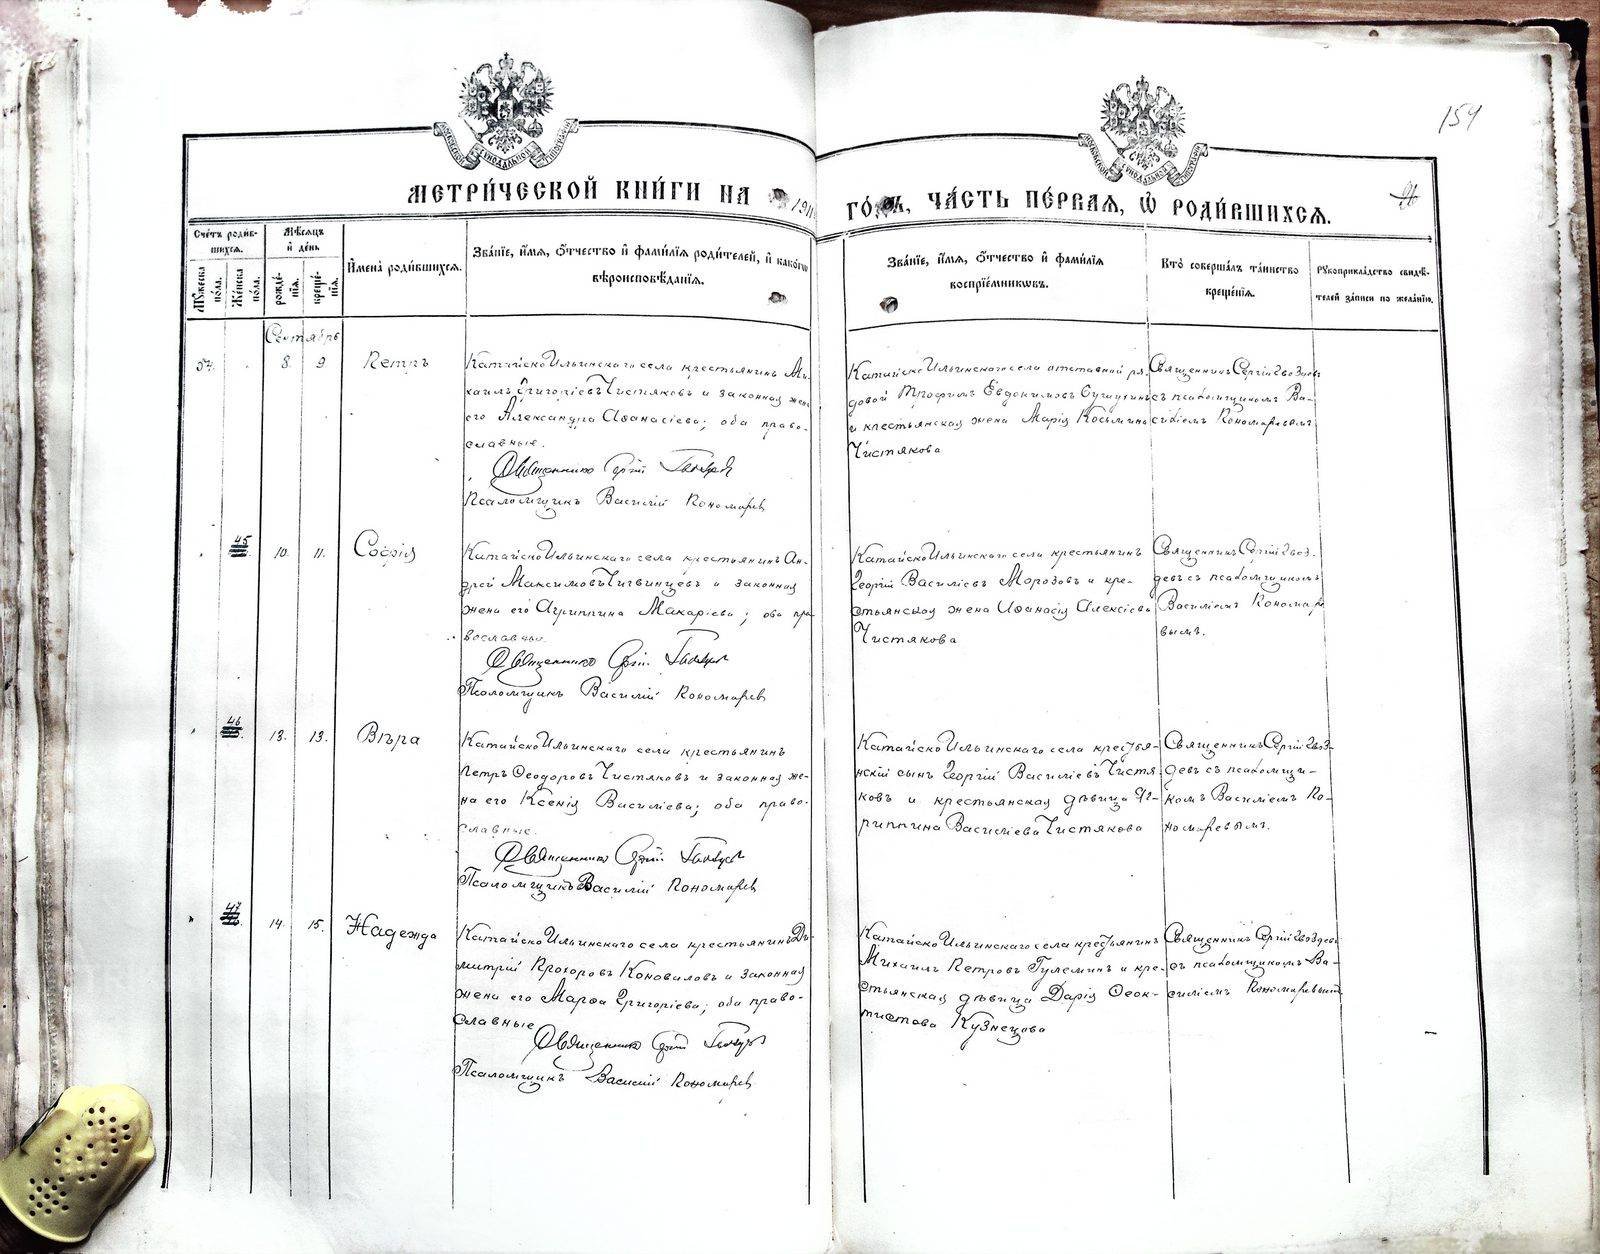 154
МОСКОВСКОЙ СѴНОДАЛЬНОЙ ТИПОГРАФІИ
МОСКОВСКОЙ СѴНОДАЛЬНОЙ ТИПОГРАФІИ
МЕТРИ́ЧЕСКОЙ КНИ́ГИ НА 1911
ГО́ДЪ, ЧА́СТЬ ПЕ́РВАЯ, Ѡ РОДИ́ВШИХСѦ.
Сче́тъ роди́в-
шихсѧ.
Му́жеска
по́ла.
Же́нска
по́ла.
Мѣ́сяцъ
и де́нь
рожде́-
нїѧ.
креще́-
нїѧ.
И́мена роди́вшихсѧ.
Зва́нїе, и́мѧ, о́тчество и фами́лїѧ роди́телей, и како́гѡ
вѣроисповѣ́данїѧ.
Зва́нїе, и́мѧ, о́тчество и фами́лїѧ
воспрїе́мникѡвъ.
Кто̀ соверша́лъ та́инство
креще́нїѧ.
Рукоприкла́дство свидѣ́-
телей за́писи по жела́нїю.
Сентябрь
57. 8. 9 Петръ
Катайско Ильинскаго села крестьянинъ Ми-
хаилъ Григоріевъ Чистяковъ и законная жена
его Александра Аѳанасіева; оба право-
славные.
Священникъ Сергій Гвоздевъ
Псаломщикъ Василій Пономаревъ
Катайско Ильинскаго села отставной ря-
довой Трофимъ Евдокимовъ
и крестьянская жена Марія Косьмина
Чистякова
Священникъ Сергій Гвоздевъ
съ псаломщикомъ Ва-
силіемъ Пономаревымъ
45 10. 11. Софія
Катайско Ильинскаго села крестьянинъ Ан-
дрей Максимовъ Чигвинцевъ и законная
жена его Агриппина Макаріева; оба пра-
вославные.
Священникъ Сергій Гвоздевъ
Псаломщикъ Василій Пономаревъ
Катайско Ильинскаго села крестьянинъ
Георгій Василіевъ Морозовъ и кре-
стьянская жена Аѳанасія Алексіева
Чистякова
Священникъ Сергій Гвоз-
девъ съ псаломщикомъ
Василіемъ Пономаре
вымъ.
46 13. 13. Вѣра
Катайско Ильинскаго села крестьянинъ
Петръ Ѳеодоровъ Чистяковъ и законная же-
на его Ксенія Василіева; оба право-
славные.
Священникъ Сергій Гвоздевъ
Псаломщикъ Василій Пономаревъ
Катайско Ильинскаго села крестья-
нскій сынъ Георгій Василіевъ Чистя-
ковъ и крестьянская дѣвица Аг-
риппина Василіева Чистякова
Священникъ Сергій Гвоз-
девъ съ псаломщи-
комъ Василіемъ По-
номаревымъ.
47 14. 15. Надежда
Катайско Ильинскаго села крестьянинъ Ди-
митрій Прохоровъ Коноваловъ и законная
жена его Марѳа Григоріева; оба право-
славные
Священникъ Сергій Гвоздевъ
Псаломщикъ Василій Пономаревъ
Катайско Ильинскаго села крестьянинъ
Михаилъ Петровъ Гулеминъ и кре-
стьянская дѣвица Дарія Ѳеок-
тистова Кузнецова
Священникъ Сергій Гвоздевъ
съ псаломщикомъ Ва-
силіемъ Пономаревымъ